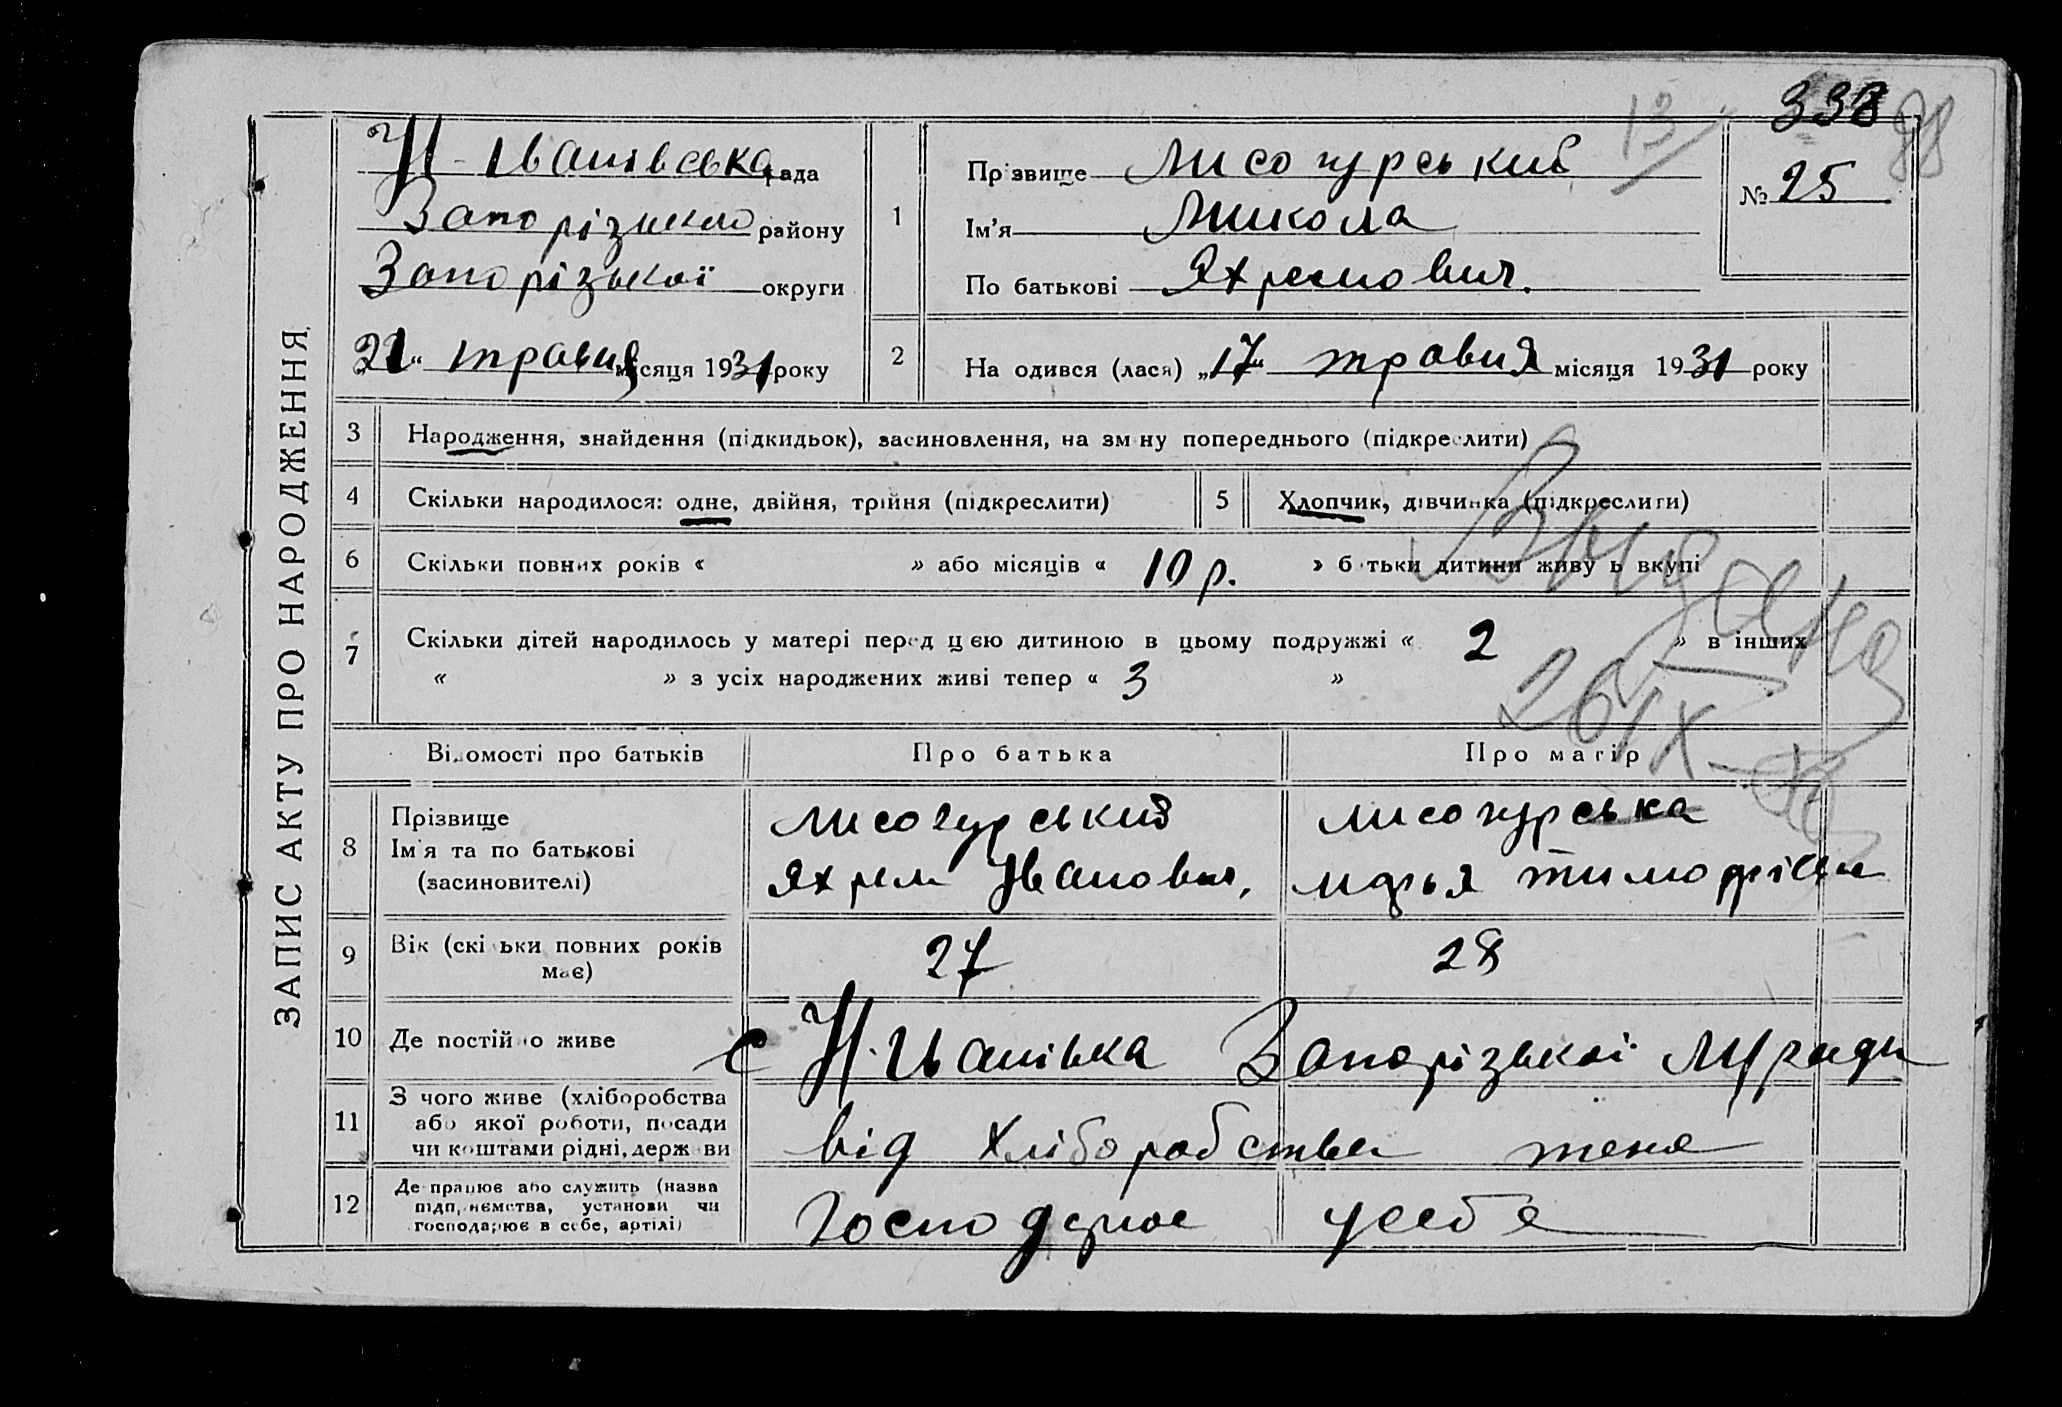 338
13
88
ЗАПИС АКТУ ПРО НАРОДЖЕННЯ
Н-Іванівська рада
Запорізького району
Запорізької округи
„21“ травня місяця 1931 року
1
Прізвище Лисогурський
Ім'я Микола
По батькові Яхремович.
№ 25
2
На одився (лася) „17“ травня місяця 1931 року
3 Народження, знайдення (підкидьок), засиновлення, на зміну попереднього (підкреслити)
4 Скільки народилося: одне, двійня, трійня (підкреслити)
5 Хлопчик, дівчинка (підкреслити)
6 Скільки повних років « » або місяців « 10 р. » батьки дитини живуть вкупі
7 Скільки дітей народилось у матері перед цією дитиною в цьому подружжі « 2 » в інших
« » з усіх народжених живі тепер « 3 »
26/IX
Відомості про батьків
Про батька
Про матір
8 Прізвище
Ім'я та по батькові
(засиновителі)
Лисогурський
Яхрем Іванович,
Лисогурська
Марья Тимофіївна
9 Вік (скільки повних років
має)
27
28
10 Де постійно живе
с Н-Іванівка Запорізької М/ради
11 З чого живе (хліборобства
або якої роботи, посади
чи коштами рідні, держави
від Хліборобства теж
12 Де працює або служить (назва
підприємства, установи чи
господарює в себе, артілі)
Господарює у себе